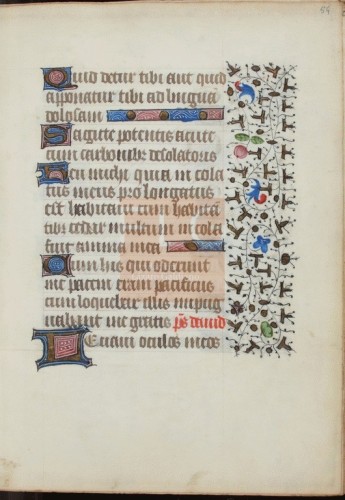 99
Quid detur tibi aut quid
apponatur tibi ad lingua
dolosam
Sagitte potentis acute
cum carbonibz desolatoriis
Heu michi quia in cola
tus meus prolongatus
est habitaui cum habita
tibz cedar multum incola
fuit anima mea
Cum his qui oderunt
me pacem eram pacificus
cum loquebar illis inpug
nabant me gratis ps dauid
Leuaui oculos meos